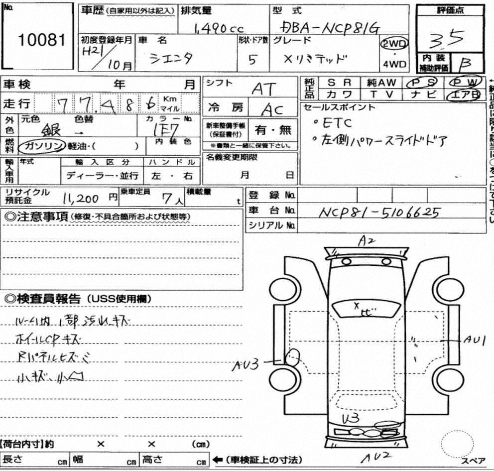 No.
10081
車歴 (自家用以外は記入) 排気量 型式
1,490cc DBA-NCP81G
評価点
3.5
初度登録年月 車名 形状・ドア数 グレード
H21/10月 シエンタ 5 Xリミテッド
2WD
4WD
内装補助評価 B
車検 年 月
シフト AT
純正品 SR 純AW PS PW
カワ TV ナビ エアB
走行 77,486 Km マイル
冷房 AC
セールスポイント
・ETC
・左側パワースライドドア
外色 元色 色替 カラーNo.
銀 - 1E7
内装色
新車整備手帳(保証書付) 有・無
※書類と一緒に保管下さい。
燃料 ガソリン 軽油・( )
名義変更期限
月 日
輸入車用 年式 輸入区分 ハンドル
ディーラー・並行 左・右
リサイクル預託金 11,200円 乗車定員 7人 積載量 t
登録No.
車台No. NCP81-5106625
シリアルNo.
◎注意事項 (修復・不具合箇所および状態等)
A2
◎検査員報告 (USS使用欄)
ルーム内1部汚レキズ
ホイールCPキズ
小キズ、小凹
AU3
AU1
U3
AU2
スペア
【荷台内寸】約 × × (cm)
長さ cm 幅 cm 高さ cm ←(車検証上の寸法)